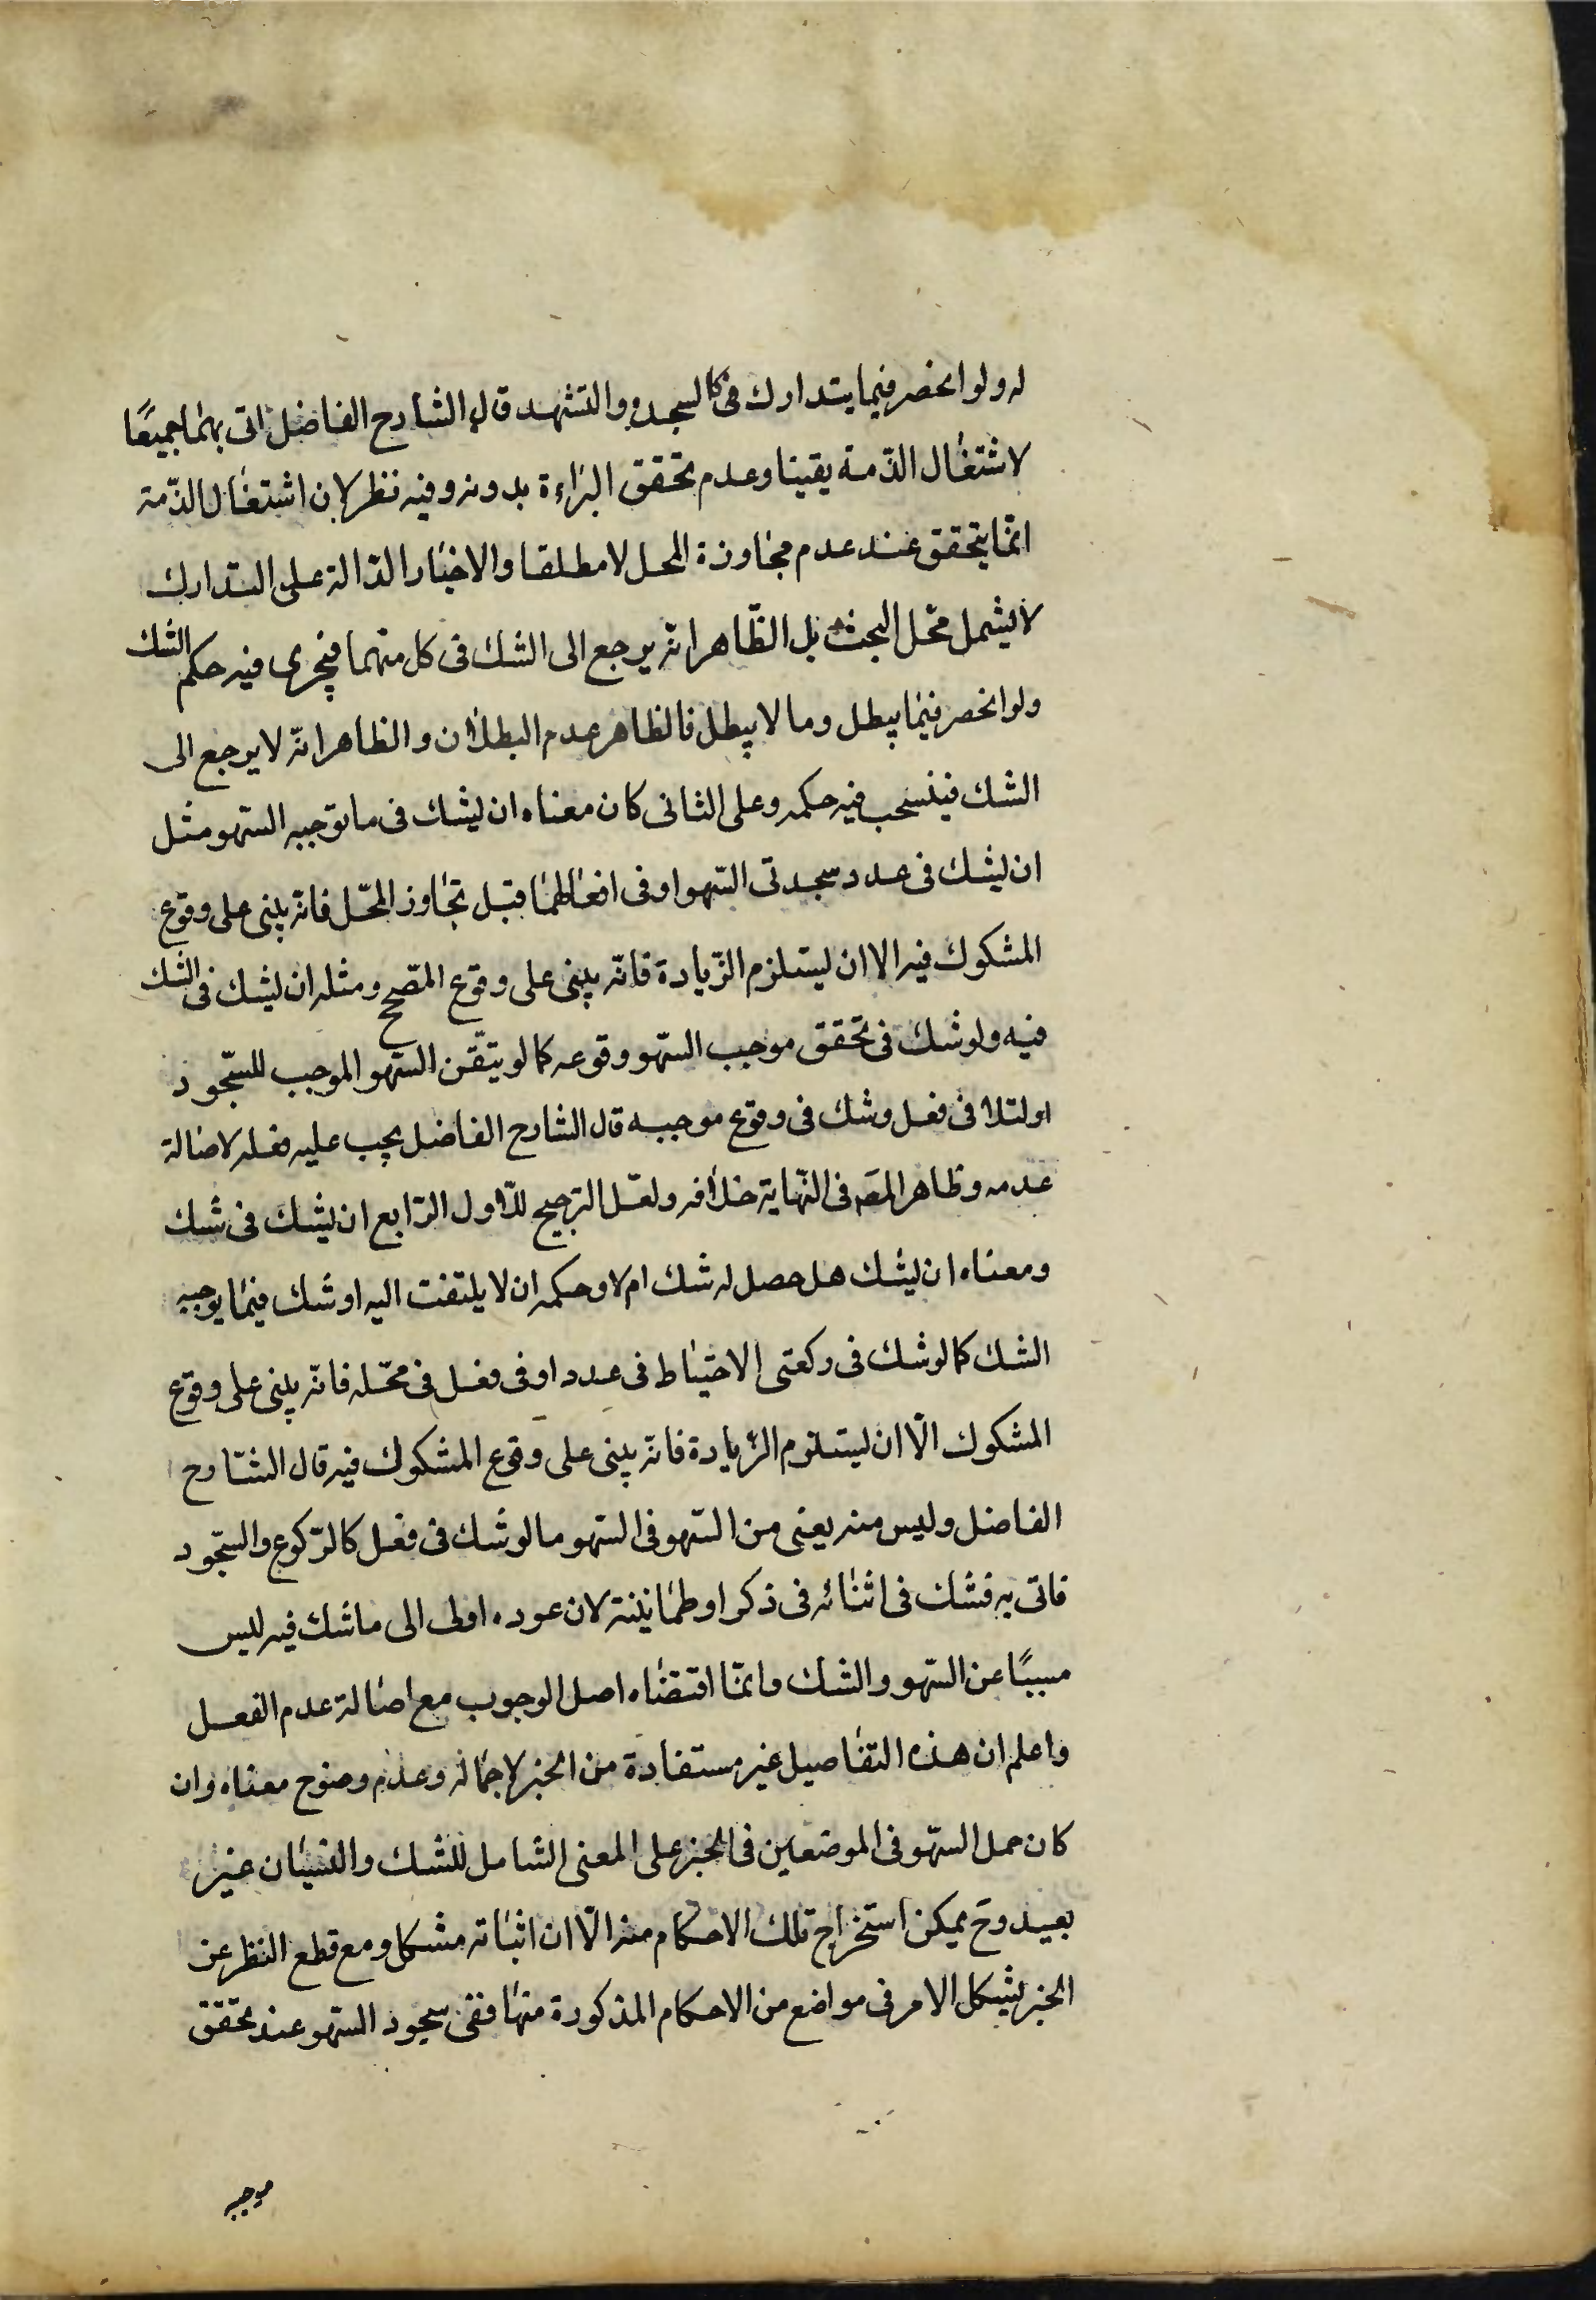 له ولو انحصر فيما يتدارك في كالسجدة والتشهد قال الشارح الفاضل اتى بهما جميعًا
لاشتغال الذّمة يقينا وعدم تحقق البراءة بدونه وفيه نظر لان اشتغال الذّمة
انّما يتحقق عند عدم مجاوزة المحل لا مطلقا والاخبار الدّالة على التدارك
لا يشمل محّل البحث بل الظّاهر انّه يرجع الى الشك في كل منهما فيجرى فيه حكم الشك
ولو انحصر فيما يبطل وما لا يبطل فالظاهر عدم البطلان والظاهر انّه لا يرجع الى
الشك فينسحب فيه حكمه وعلى الثانى كان معناه ان يشك في ما توجبه السّهو مثل
ان يشك في عدد سجدتى السّهو او في افعالهما قبل تجاوز المحّل فانّه يبنى على وقوع
المشكوك فيه الا ان يستلزم الزّيادة فانّه يبنى على وقوع المصّحح ومثله ان يشك في الشك
فيه ولو شك في تحقق موجب السّهو وقوعه كما لو يتقّن السّهو الموجب للسّجود
او لتلافى فعل وشك في وقوع موجبه قال الشارح الفاضل يجب عليه فعله لاصالة
عدمه وظاهر المصّ في النّهاية خلافه ولعّل الترجيح للاول الرّابع ان يشك في شك
ومعناه ان يشك هل حصل له شك ام لا وحكمه ان لا يلتفت اليه او شك فيما يوجبه
الشك كما لو شك في ركعتى الاحتياط في عدد او في فعل في محّله فانّه يبنى على وقوع
المشكوك الّا ان يستلزم الزّيادة فانّه يبنى على وقوع المشكوك فيه قال الشّارح
الفاضل وليس منه يعنى من السّهو في السّهو ما لو شك في فعل كالرّكوع والسّجود
فاتى به فشك في اثنائه في ذكر او طمانينة لان عوده اولى الى ما شك فيه ليس
مسببًا عن السّهو والشك وانمّا اقتضاه اصل الوجوب مع اصالة عدم الفعل
واعلم ان هذه التفاصيل غير مستفادة من الخبر لاجماله وعدم وضوح معناه وان
كان حمل السّهو في الموضعين في الخبر على المعنى الشامل للشك والنسيان غير
بعيد وح يمكن استخراج تلك الاحكام منه الّا ان اثباته مشكل ومع قطع النظر عن
الخبر يشكل الامر في مواضع من الاحكام المذكورة منها ففى سجود السّهو عند تحقق
موجبه